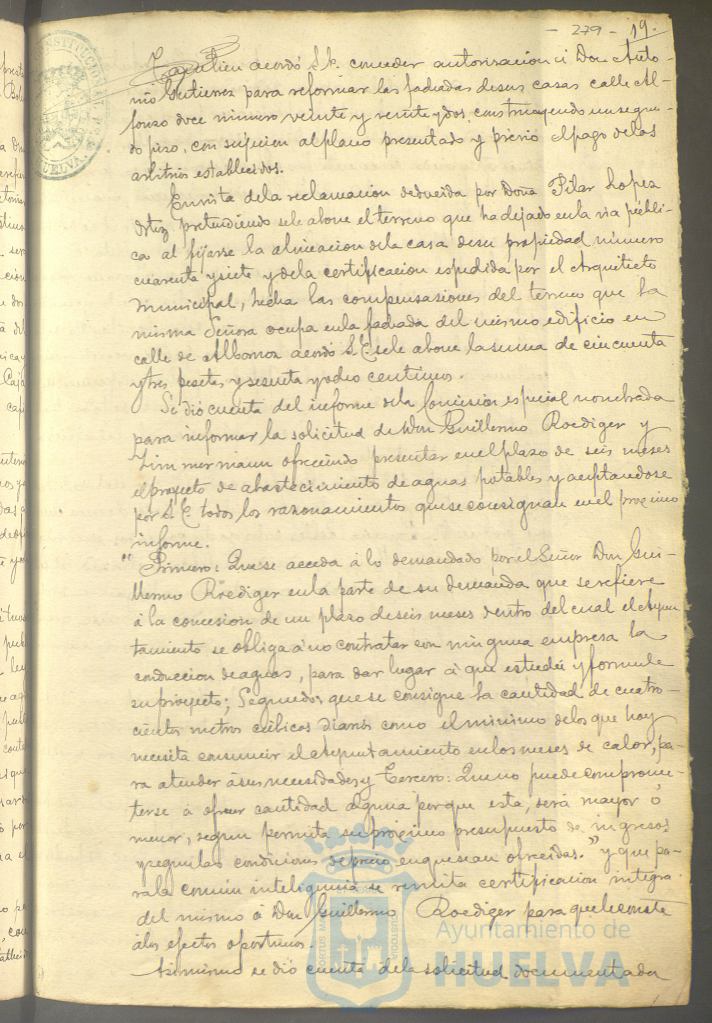 - 279 - 19.
Tambien acordó S.E. conceder autorizacion á Don Anto-
nio Gutierrez para reformar las fachadas de sus casas calle Al-
fonso doce numero veinte y veinte y dos, construyendo un segun-
do piso, con sujecion al plano presentado y previo el pago de los
arbitrios establecidos.
En vista de la reclamacion deducida por Doña Pilar Lopez
Ortiz pretendiendo se le abone el terreno que ha dejado en la via públi-
ca al fijarse la alineacion de la casa de su propiedad número
cuarenta y siete y de la certificacion espedida por el Arquitecto
Municipal, hecha las compensaciones del terreno que la
misma Señora ocupa en la fachada del mismo edificio en
calle de Albornoz acordó S.E. se le abone la suma de cincuenta
y tres pesetas y sesenta y ocho centimos.
Se dió cuenta del informe de la Comision especial nombrada
para informar la solicitud de Don Guillermo Roediger y
Zimmermann ofreciendo presentar en el plazo de seis meses
el proyecto de abastecimiento de aguas potables y aceptandose
por S.E. todos los razonamientos que se consignan en el proximo
informe.
"Primero: Que se acceda á lo demandado por el Señor Don Gui-
llermo Roediger en la parte de su demanda que se refiere
á la concesion de un plazo de seis meses dentro del cual el Ayun-
tamiento se obliga á no contratar con ninguna empresa la
conduccion de aguas, para dar lugar á que estudie y formule
su proyecto; Segundo: que se consigne la cantidad de cuatro-
cientos metros cúbicos diarios como el minimo de los que hoy
necesita consumir el Ayuntamiento en los meses de calor, pa-
ra atender á sus necesidades y Tercero: Que no puede comprome-
terse á ofrecer cantidad alguna porque esta, será mayor ó
menor, segun permita su proximo presupuesto de ingresos
y segun las condiciones de precio en que sean ofrecidas." y que pa-
ra la comun inteligencia se remita certificacion integra
del mismo á Don Guillermo Roediger para que le conste
á los efectos oportunos.
Asimismo se dió cuenta de la solicitud documentada
Ayuntamiento de
HUELVA